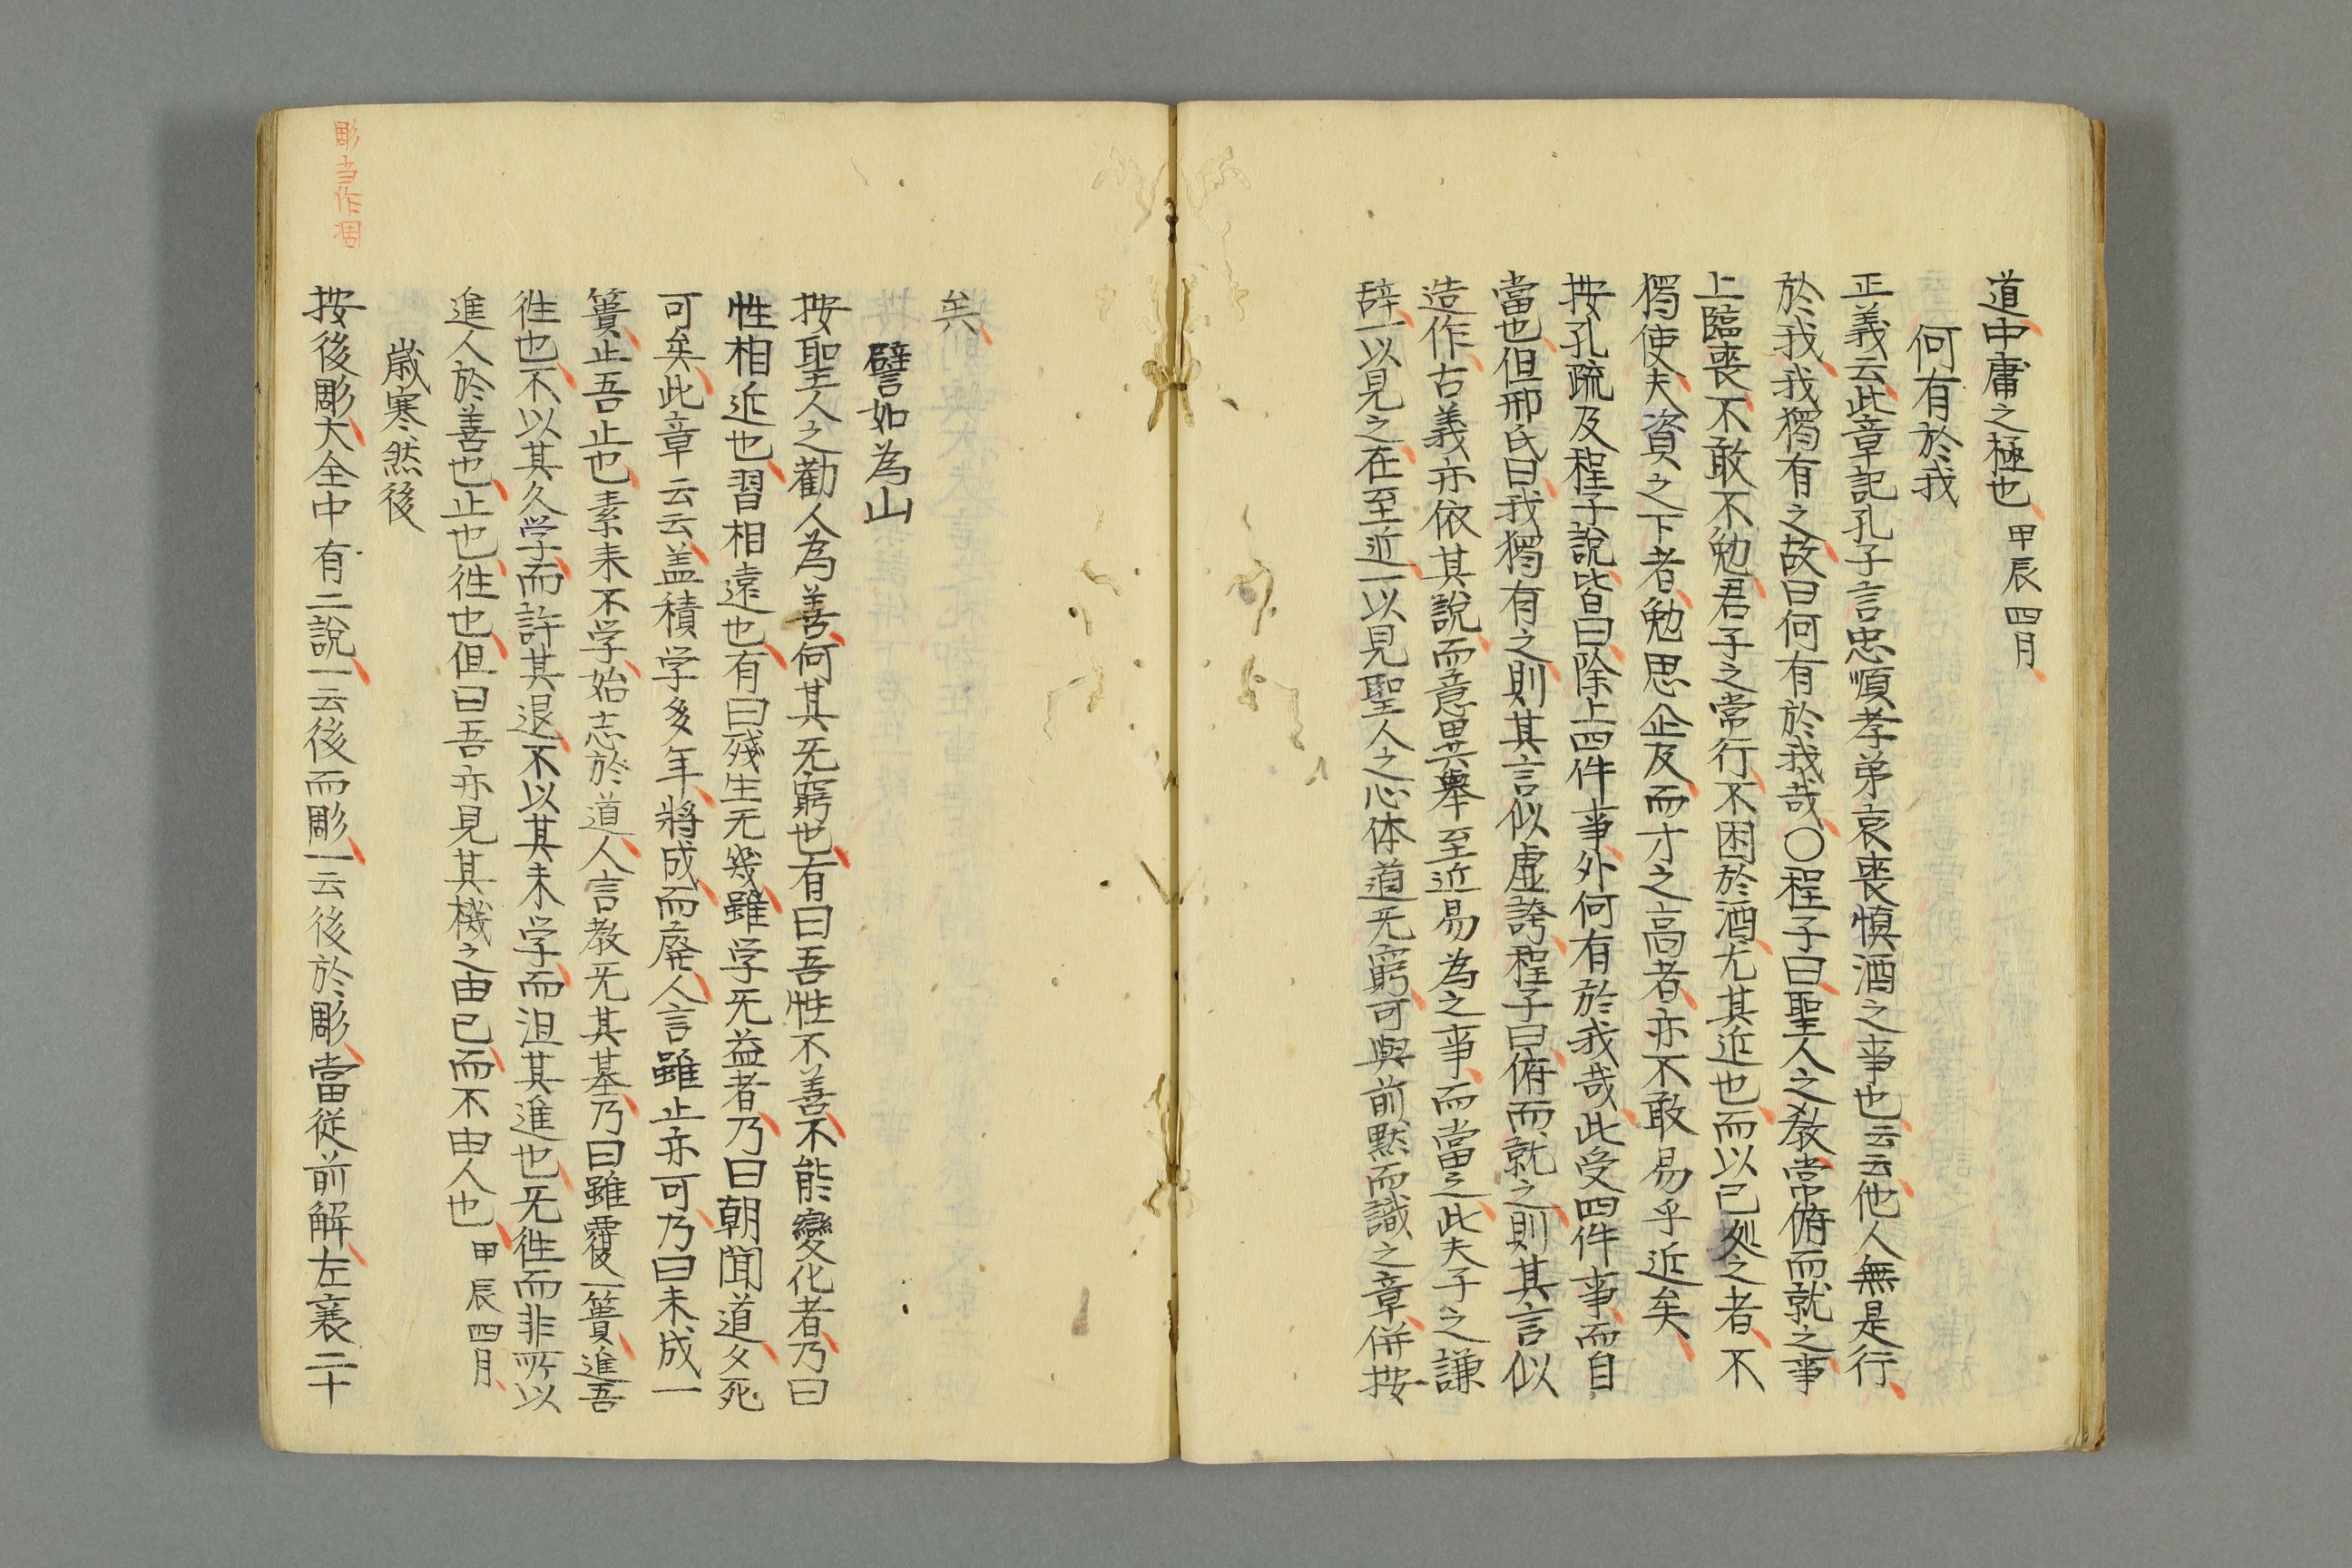 道中庸之極也 甲辰四月
何有於我
正義云此章記孔子言忠順孝弟哀喪慎酒之事也云云他人無是行
於我我獨有之故曰何有於我哉○程子曰聖人之教常俯而就之事
上臨喪不敢不勉君子之常行不困於酒尤其近也而以己処之者不
獨使夫資之下者勉思企及而才之高者亦不敢易乎近矣
按孔疏及程子說皆曰除上四件事外何有於我哉此受四件事而自
當也但邢氏曰我獨有之則其言似虚誇程子曰俯而就之則其言似
造作古義亦依其說而意異共舉至近易為之事而當之此夫子之謙
辞一以見之在至近一以見聖人之心体道无窮可與前黙而識之章併按
矣
譬如為山
按聖人之勸人為善何其无窮也有曰吾性不善不能變化者乃曰
性相近也習相遠也有曰殘生无幾雖学无益者乃曰朝聞道夕死
可矣此章云云盖積学多年將成而廃人言雖止亦可乃曰未成一
簣止吾止也素来不学始志於道人言教无其基乃曰雖覆一簣進吾
徃也不以其久学而許其退不以其未学而沮其進也无徃而非所以
進人於善也止也徃也但曰吾亦見其機之由己而不由人也 甲辰四月
歳寒然後
按後彫大全中有二說一云後而彫一云後於彫當従前解左襄二十
彫当作凋